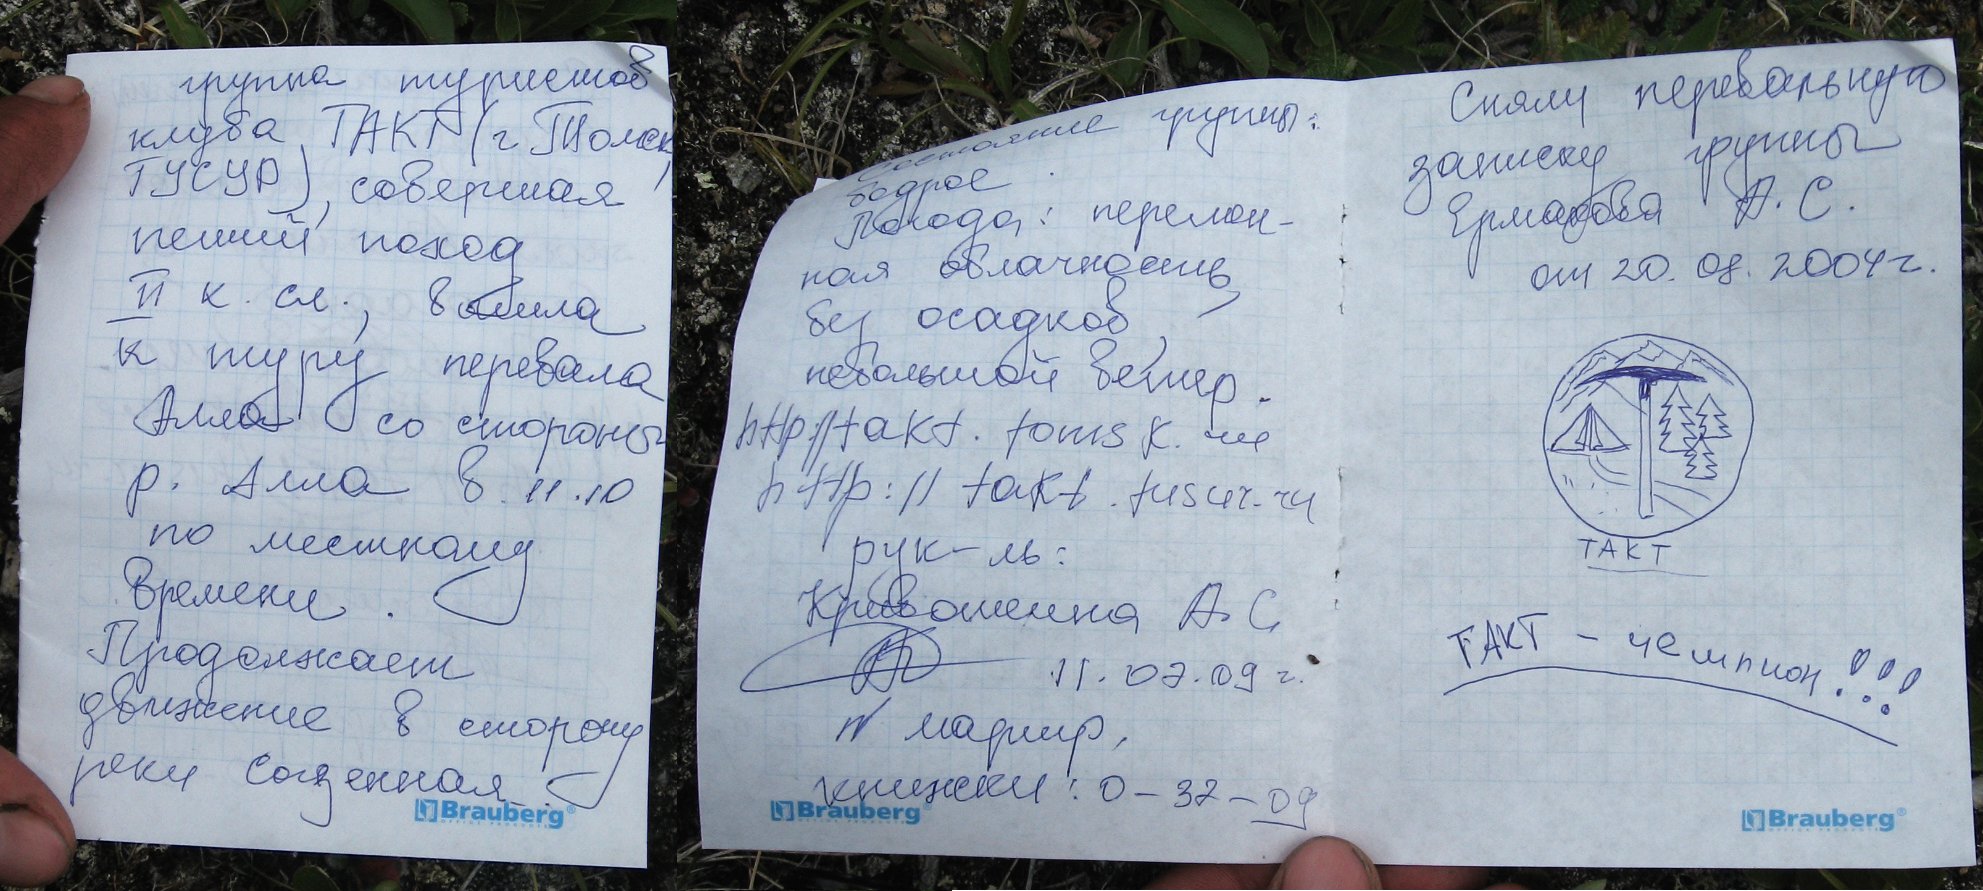 группа туристов
клуба ТАКТ (г Томск,
ТУСУР), совершая
пеший поход
II к. сл.,
к туру перевала
Алла со стороны
р. Алла в 11.10
по местному
времени.
Продолжает
движение в сторону
реки
Brauberg®
OFFICE PRODUCTS
Состояние группы:
бодрое.
Погода: перемен-
ная облачность,
без осадков,
небольшой ветер.
http//takt.tomsk.ru
http://takt.tusur.ru
рук-ль:
Кривошеина А.С.
11.07.09 г.
N маршр.
книжки: 0-37-09
Brauberg®
OFFICE PRODUCTS
Сняли перевальную
записку группы
Ермакова А.С.
от 20.08.2004г.
ТАКТ
ТАКТ - чемпион!!!
Brauberg®
OFFICE PRODUCTS